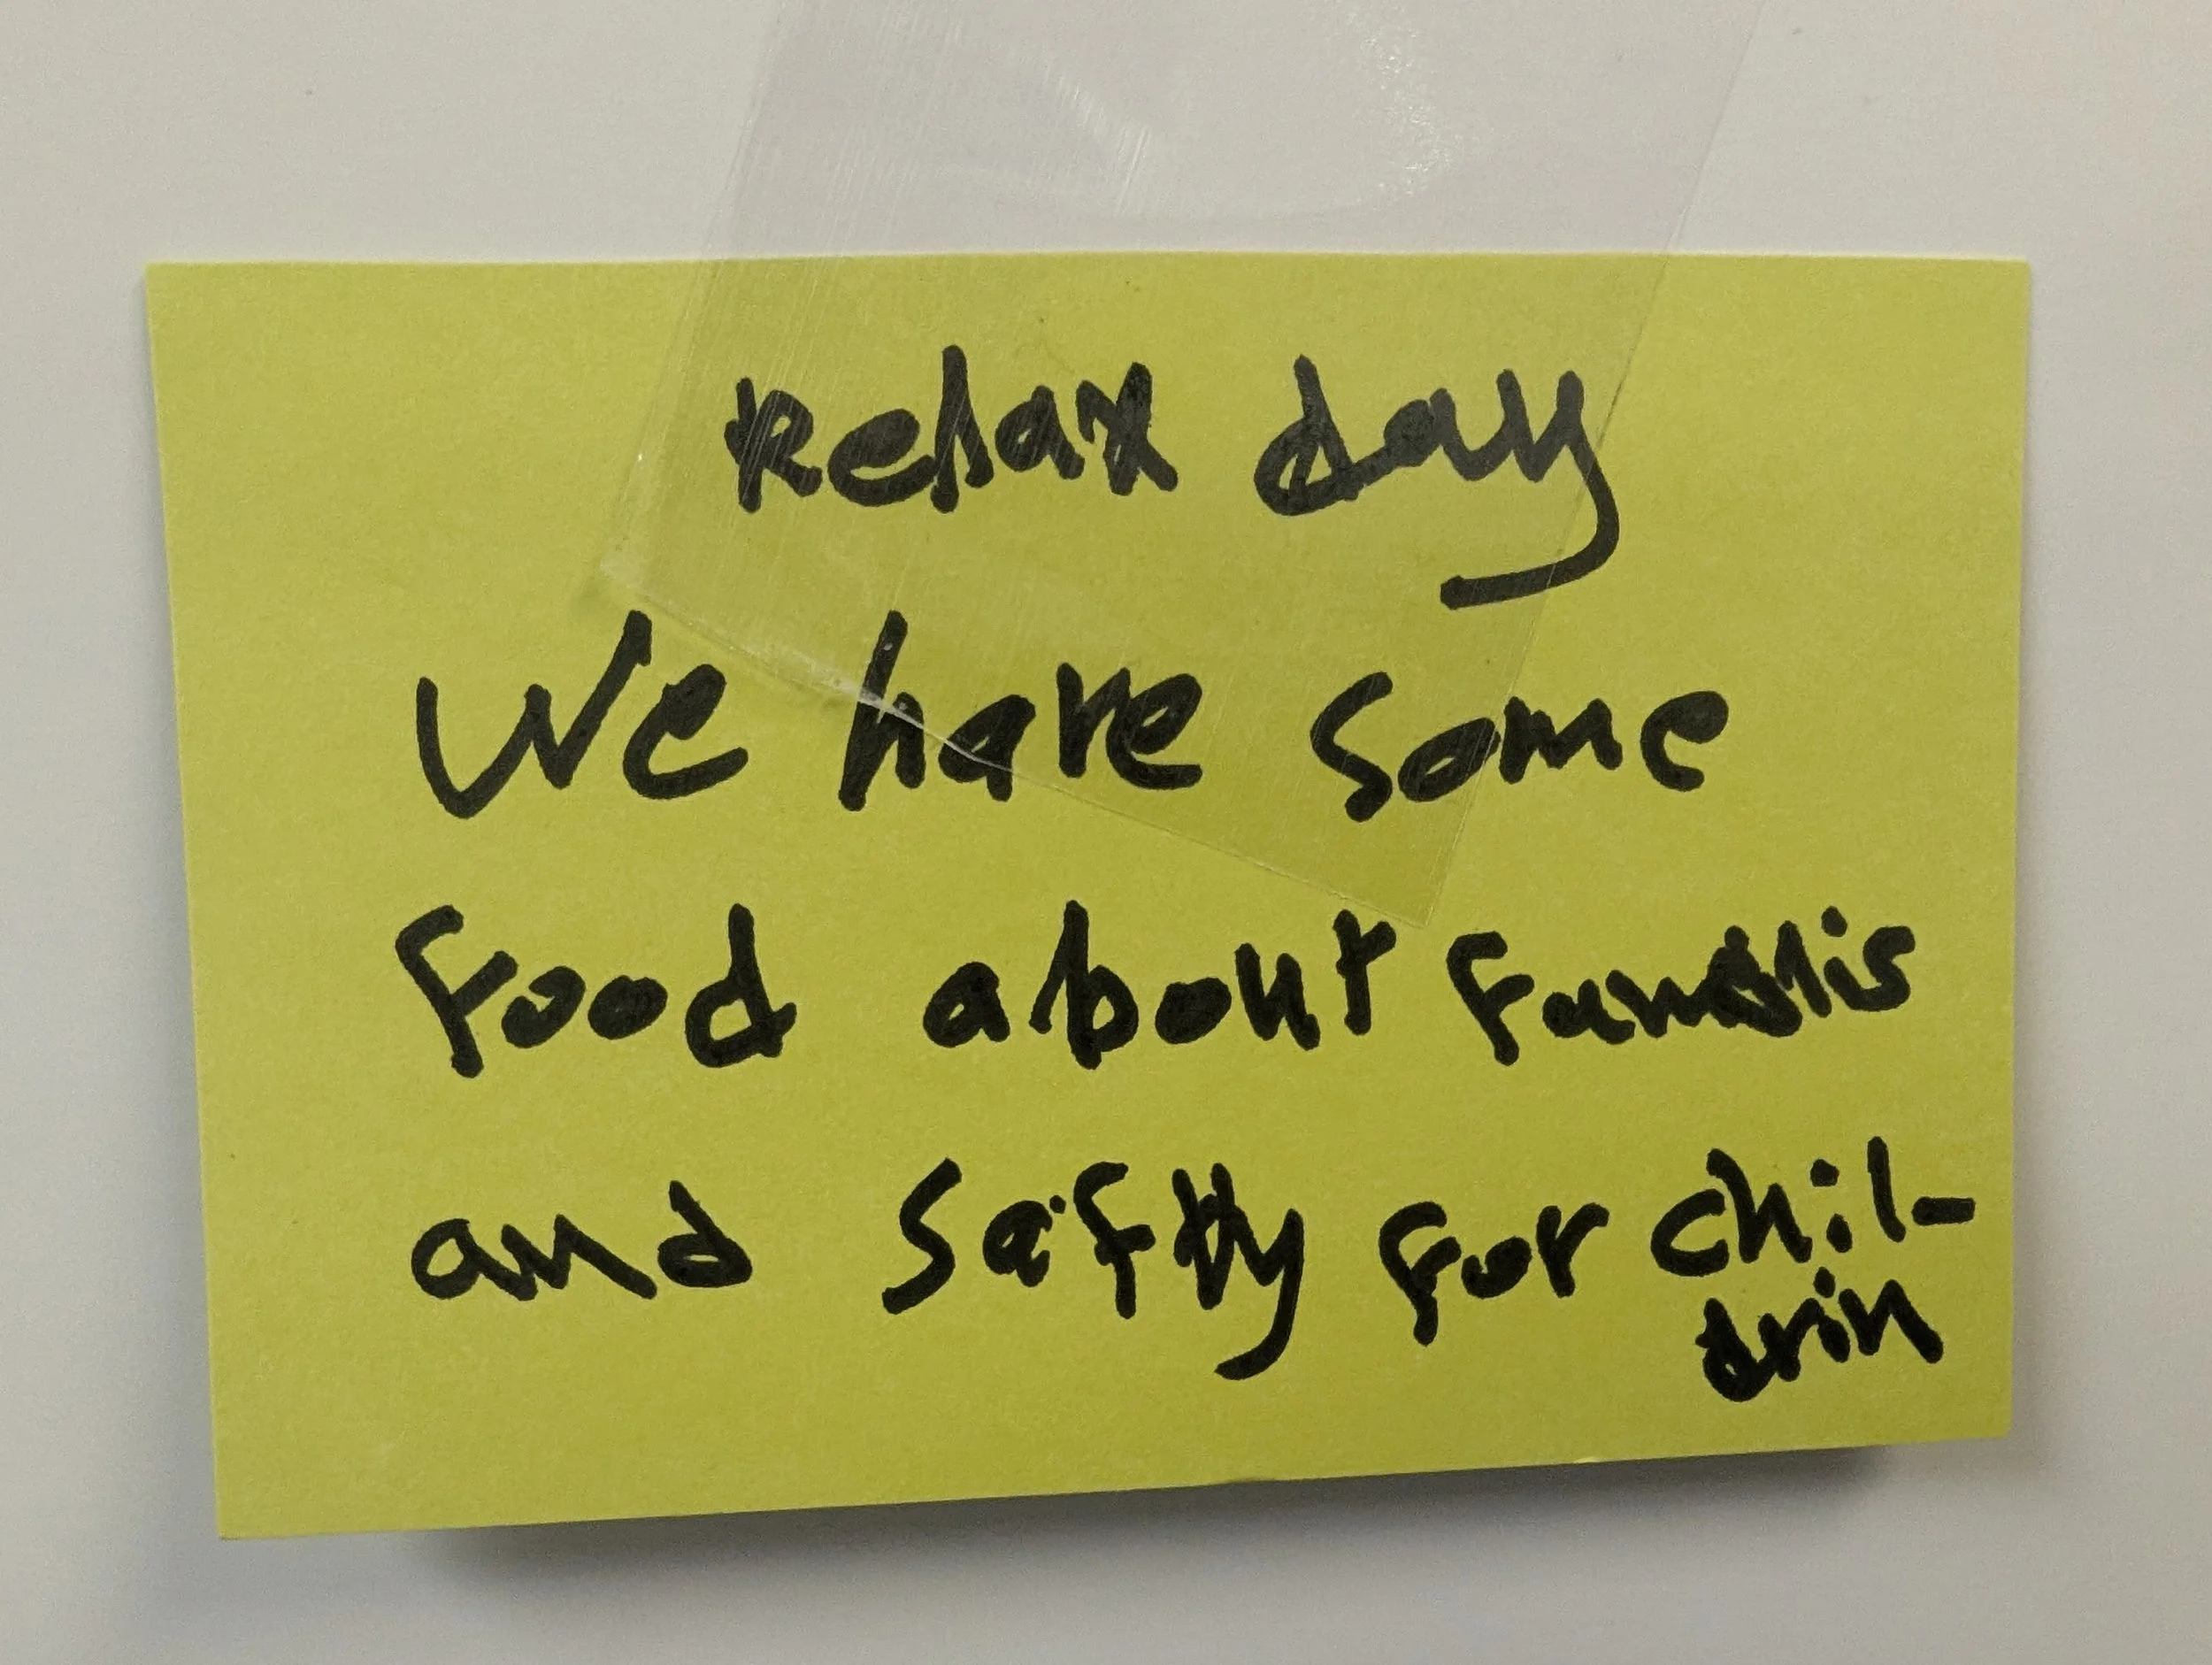 Relax day
We have some
Food about Familis
and Safty for chil-
drin